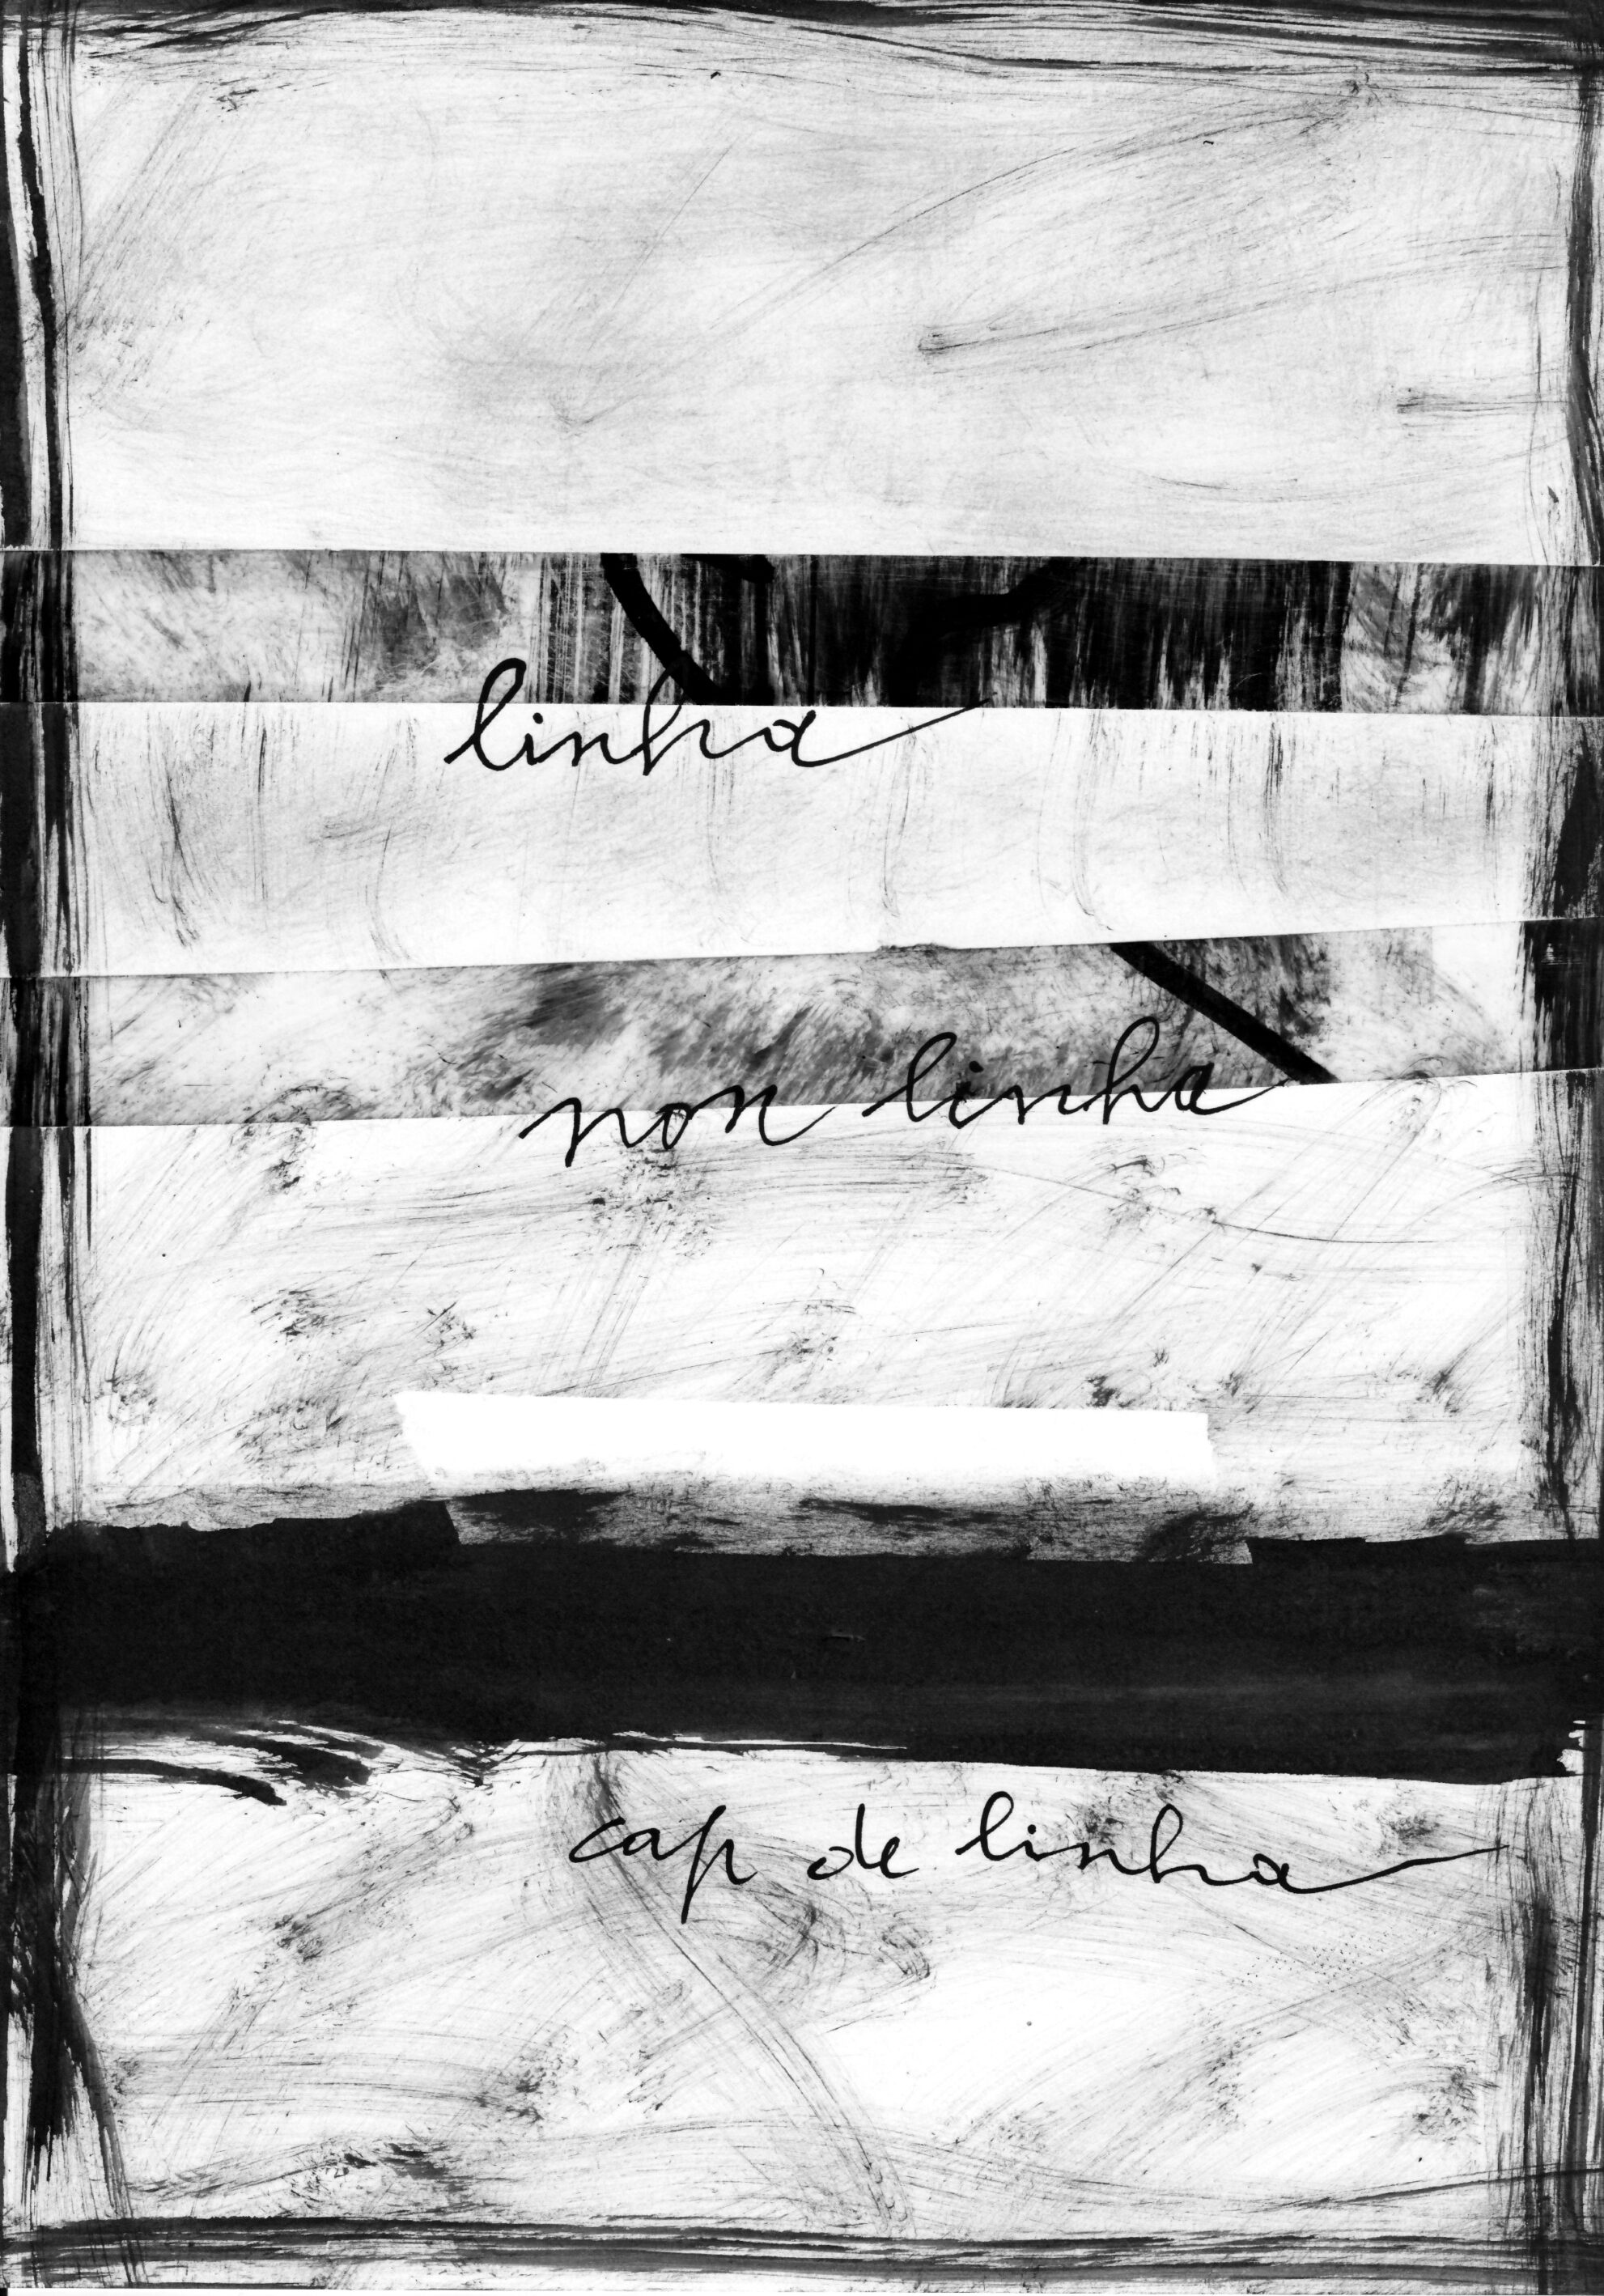 linha
non linha
cap de linha